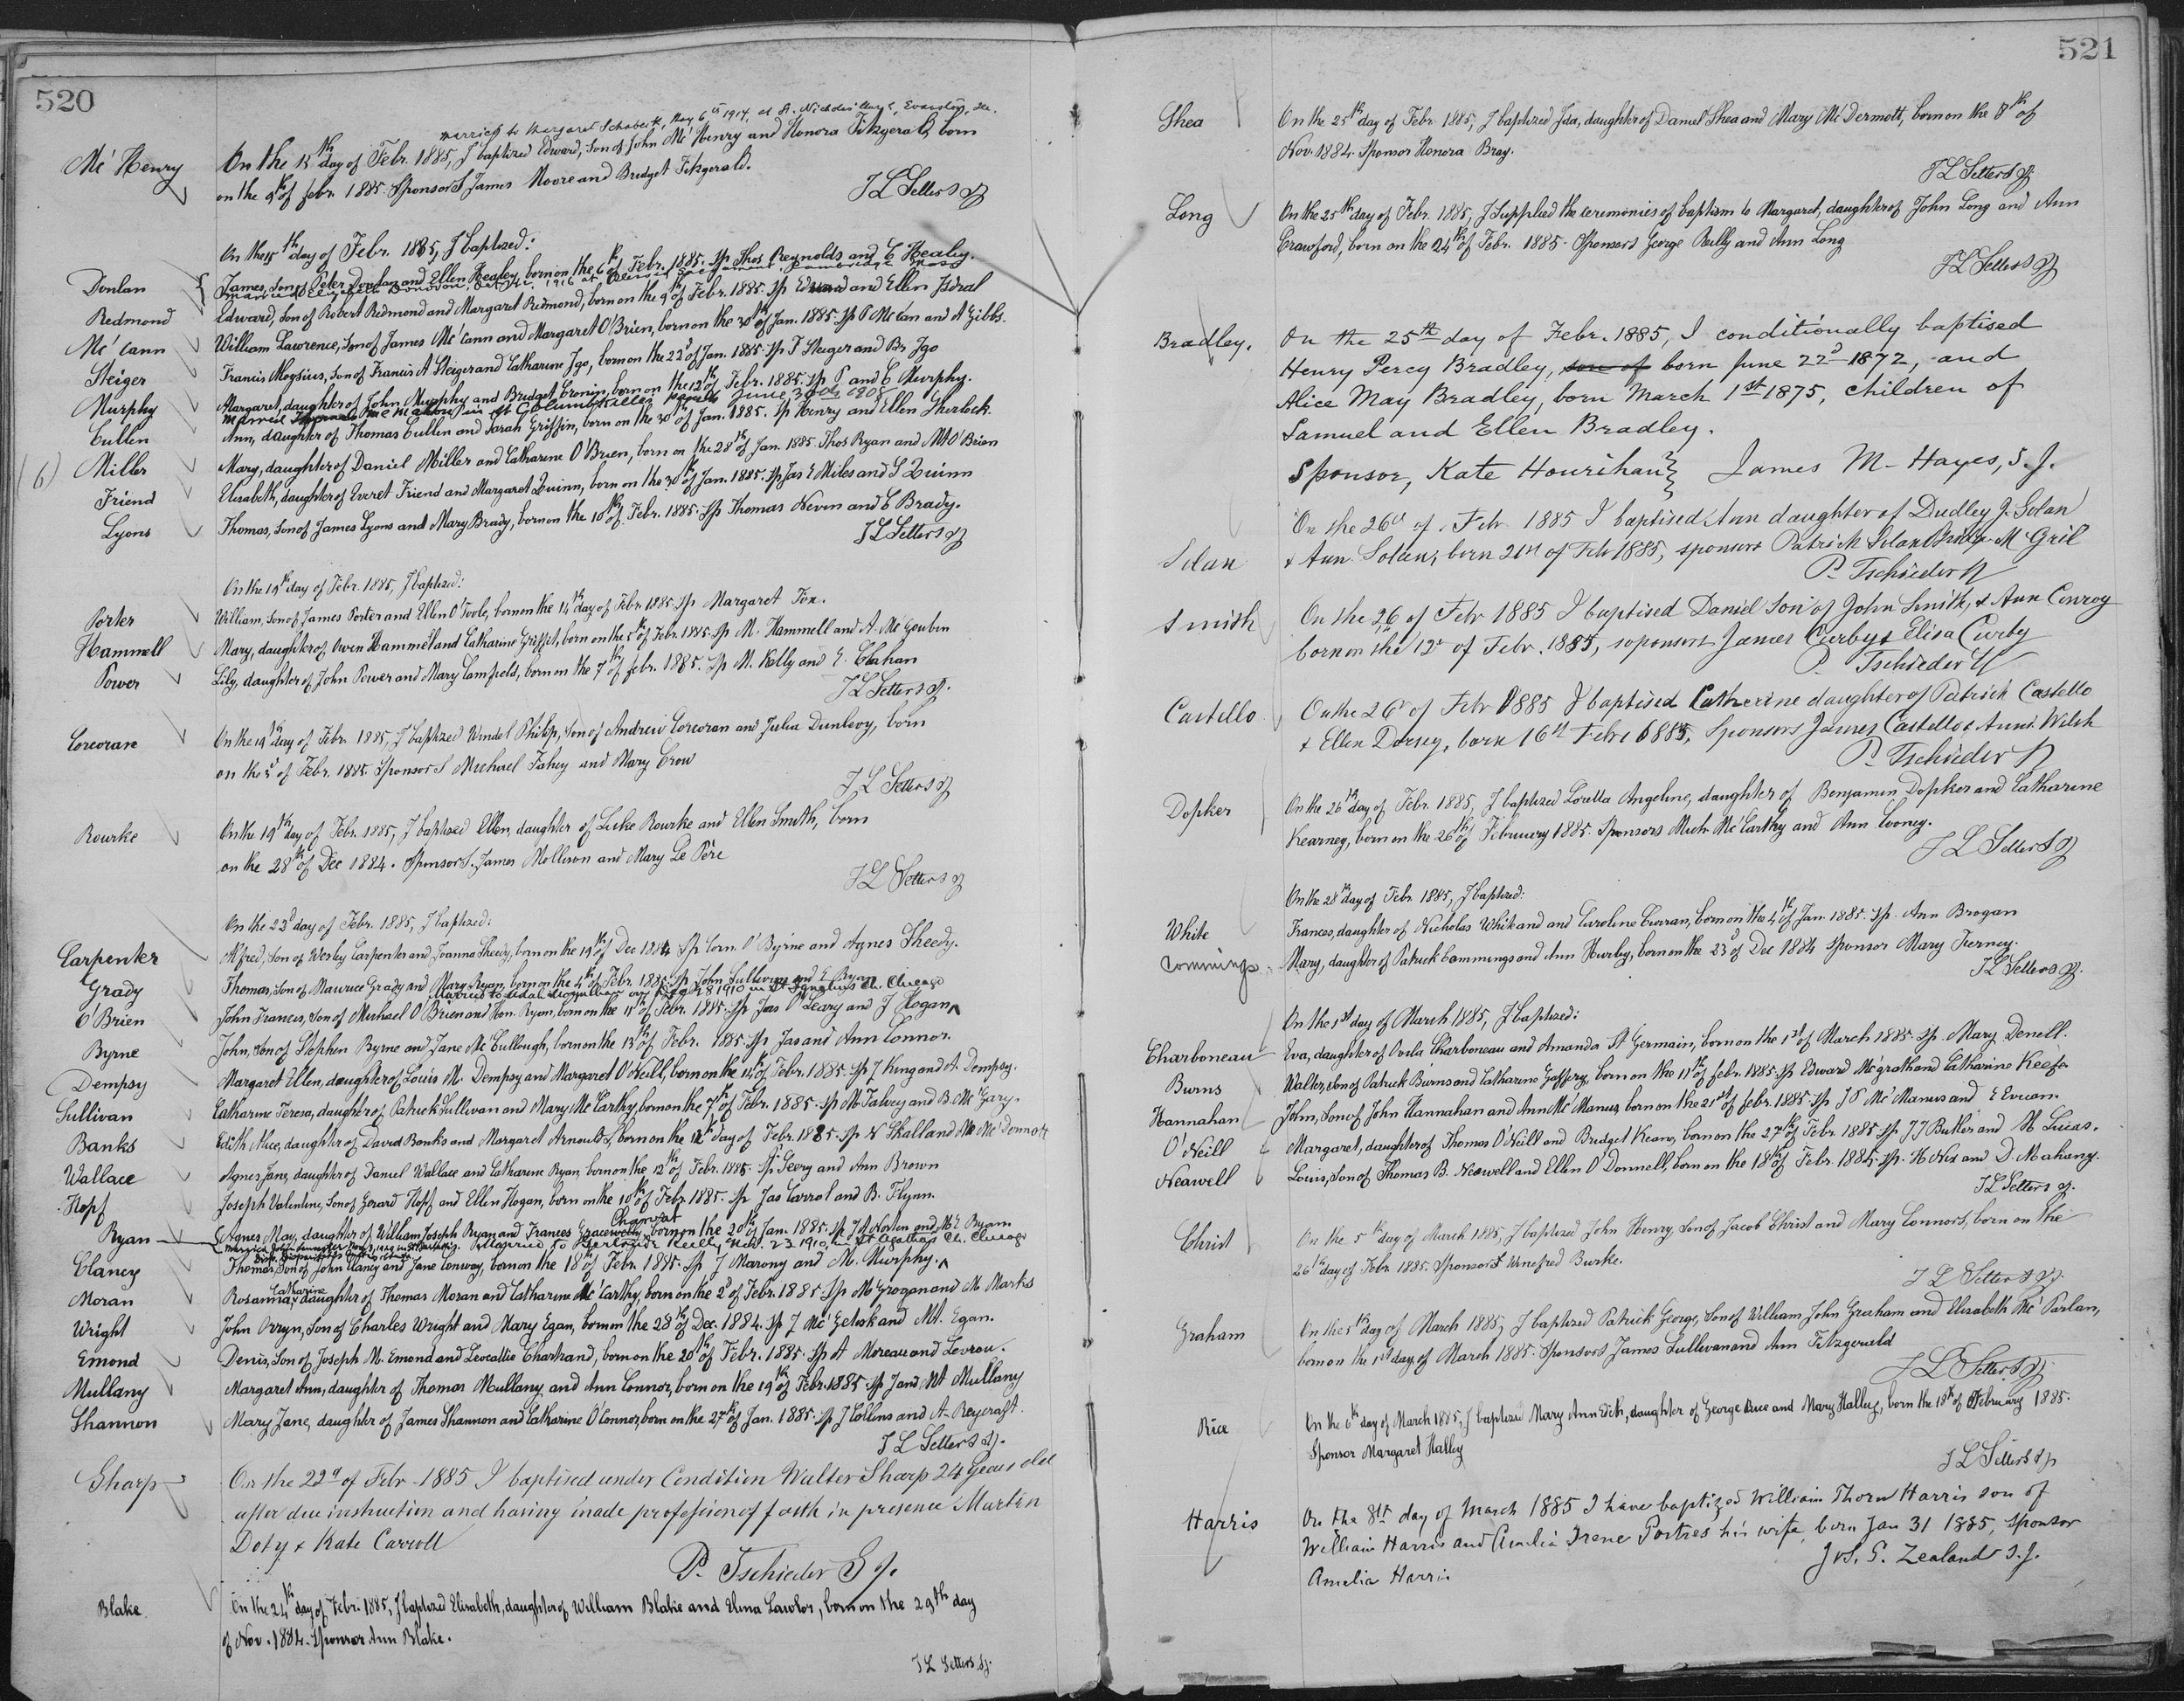 520
married to Margaret Schoberth, May 6th 1914, at St. Nicholas Church, Evanston, Ill.
Mc' Henry On the 15th day of Febr. 1885, I baptized Edward, Son of John Mc' Henry and Honora Fitzgerald, born
on the 9th of febr. 1885. Sponsors James Moore and Bridget Fitzgerald.
F L Setters sj
On the 15th day of Febr. 1885, I baptized:
Donlan James, Son of Peter Donlan and Ellen Healey, born on the 6th of Febr. 1885. Sp Thos Reynolds and C Healey.
married Elizabeth Donovan, 1916 at Blessed Sacrament, Cambridge Mass
Redmond Edward, Son of Robert Redmond and Margaret Redmond, born on the 9th of Febr. 1885. Sp Edward and Ellen Isdral
Mc' Cann William Lawrence, Son of James Mc' Cann and Margaret O'Brien, born on the 30th of Jan. 1885. Sp P Mc'Can and A Gibbs.
Steiger Francis Aloysius, Son of Francis A Steiger and Catharine Igo, born on the 22d of Jan. 1885. Sp F Steiger and Br Igo
Murphy Margaret, daughter of John Murphy and Bridget Cronin, born on the 12th of Febr. 1885. Sp P and C Murphy.
married in St Columbkilles June 30th 1908
Cullen Ann, daughter of Thomas Cullen and Sarah Griffin, born on the 30th of Jan. 1885. Sp Henry and Ellen Sherlock.
(6) Miller Mary, daughter of Daniel Miller and Catharine O'Brien, born on the 28th of Jan. 1885. Thos Ryan and M O'Brien
Friend Elisabeth, daughter of Everet Friend and Margaret Quinn, born on the 30th of Jan. 1885. Sp Jas E Miles and S Quinn
Lyons Thomas, Son of James Lyons and Mary Brady, born on the 10th of Febr. 1885. Sp Thomas Nevin and C Brady.
F L Setters sj
On the 19th day of Febr. 1885, I baptized:
Porter William, Son of James Porter and Ellen O'Toole, born on the 14th day of Febr. 1885. Sp Margaret Fox.
Hammell Mary, daughter of Owen Hammel and Catharine Griffit, born on the 5th of Febr. 1885. Sp M. Hammell and A. Mc Goubin
Power Lily, daughter of John Power and Mary Canfield, born on the 7th of febr. 1885. Sp M. Kelly and E. Clahan
F L Setters sj.
Corcoran On the 19th day of Febr. 1885, I baptized Wendel Philip, Son of Andrew Corcoran and Julia Dunlevy, born
on the 3d of Febr. 1885. Sponsors Michael Fahey and Mary Crow
F L Setters sj
Rourke On the 19th day of Febr. 1885, I baptized Ellen, daughter of Luke Rourke and Ellen Smith, born
on the 28th of Dec 1884. Sponsors James Mollison and Mary Le Père
F L Setters sj
On the 22d day of Febr. 1885, I baptized:
Carpenter Alfred, Son of Wesley Carpenter and Joanna Sheedy, born on the 19th of Dec 1884 Sp Corn. O'Byrne and Agnes Sheedy.
Grady Thomas, Son of Maurice Grady and Mary Ryan, born on the 4th of Febr. 1885. Sp John Sullivan and E Ryan
married to on Aug 28 1910 in St Ignatius Ch. Chicago
O'Brien John Francis, Son of Michael O'Brien and Hon. Ryan, born on the 15th of Febr. 1885. Sp Jas O'Leary and J Hogan
Byrne John, Son of Stephen Byrne and Jane Mc' Cullough, born on the 13th of Febr. 1885. Sp Jas and Ann Connor.
Dempsy Margaret Ellen, daughter of Louis M. Dempsy and Margaret O'Neill, born on the 14th of Febr. 1885. Sp J King and A. Dempsy.
Sullivan Catharine Teresa, daughter of Patrick Sullivan and Mary Mc Carthy, born on the 7th of Febr. 1885. Sp M Falvey and B. Mc Gary.
Banks Edith Alice, daughter of David Banks and Margaret Arnould, born on the 12th day of Febr. 1885. Sp N Skall and M Mc' Donnott
Wallace Agnes Jane, daughter of Daniel Wallace and Catharine Ryan, born on the 12th of Febr. 1885. Sp. Georg and Ann Brown
Hopf Joseph Valentine, Son of Gerard Hopf and Ellen Hogan, born on the 10th of Febr. 1885. Sp. Jas Carrol and B. Flynn.
Chanvat
Ryan Agnes May, daughter of William Joseph Ryan and Frances Gracewoth, born on the 20th of Jan. 1885. Sp J A Norten and M E Ryam
married to Gertrude Reilly, Nov. 23 1910, in St Agatha's Ch. Chicago
Clancy Thomas, Son of John Clancy and Jane Conway, born on the 18th of Febr. 1885. Sp J Marony and M. Murphy.
Catharine
Moran Rosanna, daughter of Thomas Moran and Catharine Mc' Carthy, born on the 2d of Febr. 1885. Sp M Grogan and M Marks
Wright John Orryn, Son of Charles Wright and Mary Egan, born on the 28th of Dec. 1884. Sp J Mc' Getrick and M. Egan.
Emond Denis, Son of Joseph M. Emond and Leocallie Chartrand, born on the 20th of Febr. 1885. Sp A Moreau and Levrou.
Mullany Margaret Ann, daughter of Thomas Mullany and Ann Connor, born on the 19th of Febr. 1885. Sp J and M Mullany
Shannon Mary Jane, daughter of James Shannon and Catharine O'Connor, born on the 27th of Jan. 1885. Sp J Collins and A Reycraft.
F L Setters sj.
Sharp On the 22d of Febr. 1885 I baptised under Condition Walter Sharp 24 years old
after due instruction and having made profession of faith in presence Martin
Doty & Kate Carroll
P. Tschieder S J.
Blake On the 24th day of Febr. 1885, I baptized Elisabeth, daughter of William Blake and Elena Lawlor, born on the 29th day
of Nov. 1884. Sponsor Ann Blake.
F L Setters sj.
521
Shea On the 25th day of Febr. 1885, I baptized Ida, daughter of Daniel Shea and Mary Mc'Dermott, born on the 8th of
Nov. 1884. Sponsor Honora Bray.
F L Setters sj.
Long On the 25th day of Febr. 1885, I Supplied the ceremonies of baptism to Margaret, daughter of John Long and Ann
Crawford, born on the 24th of Febr. 1885. Sponsors George Reilly and Ann Long
F L Setters sj
Bradley. On the 25th day of Febr. 1885, I conditionally baptised
Henry Percy Bradley, son of born June 22d 1872, and
Alice May Bradley, born March 1st 1875, children of
Samuel and Ellen Bradley.
Sponsor, Kate Hourihan James M. Hayes, S.J.
On the 26th of Feb. 1885 I baptised Ann daughter of Dudley J. Solan
Solan & Ann Solan, born 21st of Feb 1885, sponsors Patrick Solan M Gril
P. Tschieder SJ
Smith On the 26 of Feb 1885 I baptised Daniel Son of John Smith, & Ann Conroy
born on the 12th of Febr. 1885, sponsors James Curby & Elisa Curby
P. Tschieder SJ
Castello On the 26th of Feb 1885 I baptised Catherine daughter of Patrick Castello
& Ellen Dorsey, born 16th Febr. 1885, Sponsors James Castello & Anna Welsh
P. Tschieder SJ
Dopker On the 26th day of Febr. 1885, I baptized Loretta Angeline, daughter of Benjamin Dopker and Catharine
Kearney, born on the 26th of February 1885. Sponsors Mich Mc'Carthy and Ann Cooney.
F L Setters sj
On the 28th day of Febr. 1885, I baptized:
White Frances, daughter of Nicholas White and and Caroline Curran, born on the 4th of Jan. 1885. Sp. Ann Brogan
Commings Mary, daughter of Patrick Cammings and Ann Hurley, born on the 23d of Dec 1884 Sponsor Mary Tierney.
F L Setters sj.
On the 1st day of March 1885, I baptized:
Charboneau Eva, daughter of Ovila Charboneau and Amanda St Germain, born on the 1st of March 1885. Sp. Mary Denell.
Burns Walter, Son of Patrick Burns and Catharine Gaffery, born on the 11th of febr. 1885. Sp Edward Mc'grath and Catharine Keefe
Hannahan John, Son of John Hannahan and Ann Mc' Manus, born on the 21st of febr. 1885. Sp J P Mc' Manus and E Evuem
O'Neill Margaret, daughter of Thomas O'Neill and Bridget Keane, born on the 27th of Febr. 1885. Sp. J J Butler and M Lucas.
Neawell Louis, Son of Thomas B. Neawell and Ellen O'Donnell, born on the 18th of Febr. 1885. Sp. H Nix and D. Mahany.
F L Setters sj.
Christ On the 5th day of March 1885, I baptized John Henry, Son of Jacob Christ and Mary Connors, born on the
26th day of Febr. 1885. Sponsor Winefred Burke.
F L Setters sj.
Graham On the 5th day of March 1885, I baptized Patrick George, Son of William John Graham and Elisabeth Mc' Parlan,
born on the 1st day of March 1885. Sponsors James Sullivan and Ann Fitzgerald
F L Setters sj.
Rice On the 6th day of March 1885, I baptized Mary Ann Edith, daughter of George Rice and Mary Halley, born the 18th of February 1885.
Sponsor Margaret Halley
F L Setters sj
Harris On the 8th day of March 1885 I have baptized William Thorn Harris son of
William Harris and Amelia Irene Portres his wife, born Jan 31 1885, Sponsor
Amelia Harris Jos. P. Zealand S.J.